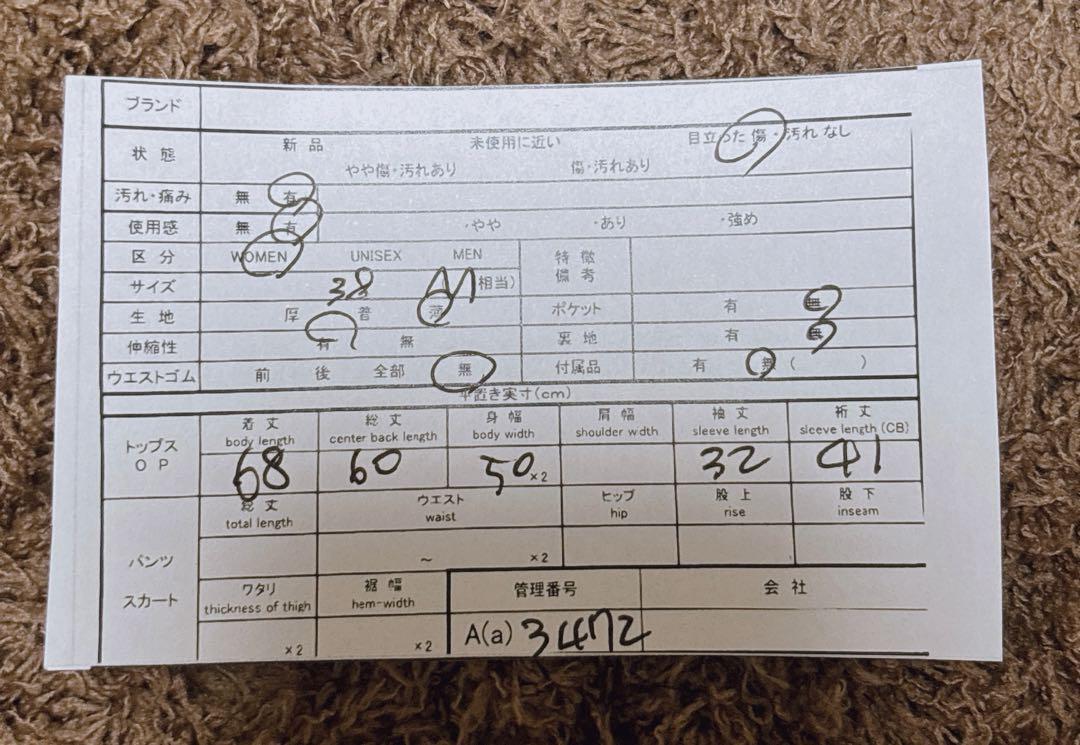 ブランド
状態 新品 未使用に近い 目立った傷・汚れなし
やや傷・汚れあり 傷・汚れあり
汚れ・痛み 無 有
使用感 無 有 ・やや ・あり ・強め
区分 WOMEN UNISEX MEN 特徴
備考
サイズ 38 M 相当)
生地 厚 普 薄 ポケット 有 無
伸縮性 有 無 裏地 有 無
ウエストゴム 前 後 全部 無 付属品 有 無 ( )
平置き実寸(cm)
トップス
OP
着丈 総丈 身幅 肩幅 袖丈 裄丈
body length center back length body width shoulder width sleeve length sleeve length (CB)
68 60 50 ×2 32 41
パンツ
スカート
総丈 ウエスト ヒップ 股上 股下
total length waist hip rise inseam
～ ×2
ワタリ 裾幅 管理番号 会社
thickness of thigh hem-width
×2 ×2 A(a) 3472